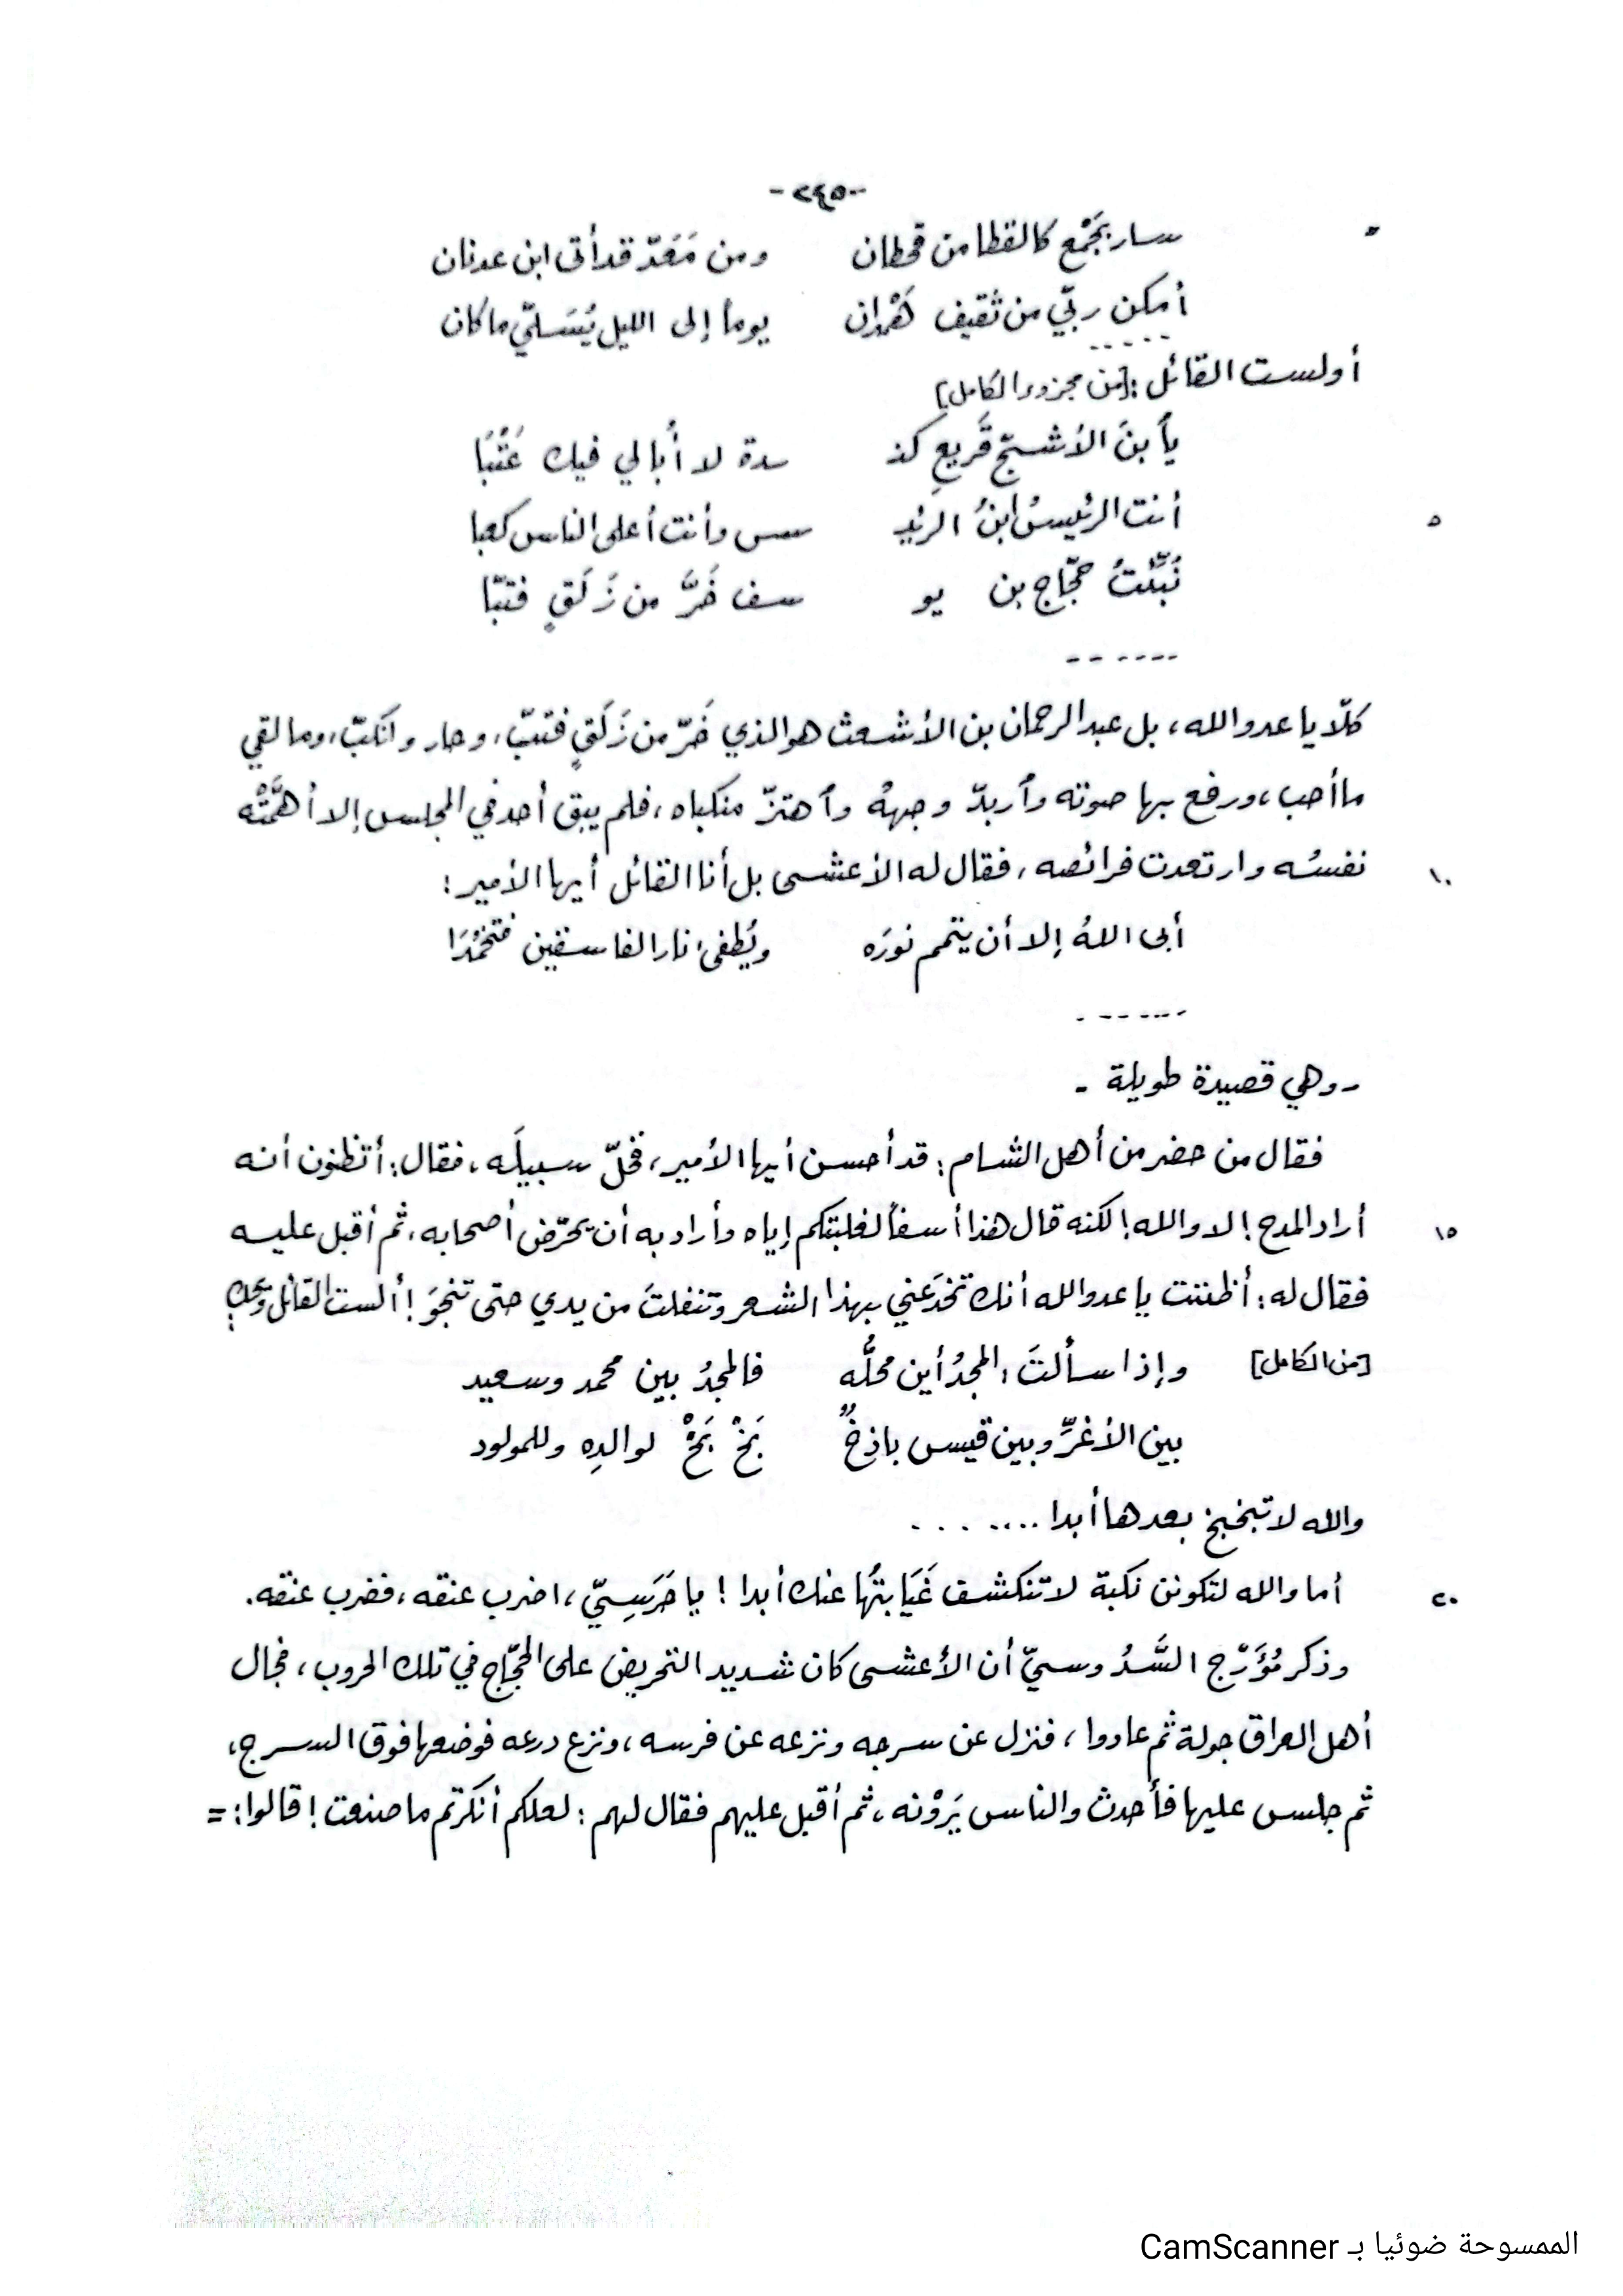 -٢٤٥-
= سار بجَمْعٍ كالقطا من قحطان ومن مَعَدّ قد أتى ابن عدنان
أمكن ربّي من ثقيف هَمْدان يوماً إلى الليل يُسَلّي ما كان
-----
أولست القائل: [من مجزوء الكامل]
يٱبنَ الأشجّ قَريعِ كنـ ـدة لا أُبالي فيك عَتْبَا
٥ أنت الرئيسُ ابنُ الرئيـ ـس وأنت أعلى الناس كعبا
نُبِّئتُ حجّاج بن يو سف خَرَّ من زَلَقٍ فتبّا
------
كلّا يا عدو الله، بل عبد الرحمان بن الأشعث هو الذي خَرّ من زَلَقٍ فتبّ، وحار وانكبّ، وما لقي
ما أحب، ورفع بها صوته وٱربدّ وجههُ وٱهتزّ منكباه، فلم يبق أحد في المجلس إلا أهمَّتْه
١٠ نفسُه وارتعدت فرائصه، فقال له الأعشى بل أنا القائل أيها الأمير:
أبى اللهُ إلا أن يتمم نورَه ويُطفىء نار الفاسقين فتخمُدَا
------
- وهي قصيدة طويلة -
فقال من حضر من أهل الشام: قد أحسن أيها الأمير، فخلّ سبيلَه، فقال: أتظنون أنه
١٥ أراد المدح! لا والله! لكنه قال هذا أسفاً لغلبتكم إياه وأراد به أن يحرّض أصحابه، ثم أقبل عليه
فقال له: أظننت يا عدو الله أنك تخدَعني بهذا الشعر وتنفلتَ من يدي حتى تنجوَ! ألست القائل ويحك:
[من الكامل] وإذا سألتَ: المجدُ أين محلُّه فالمجدُ بين محمد وسعيد
بين الأغرِّ وبين قيس باذِخٌ بَخْ بَخْ لوالدِه وللمولود
والله لا تبخبخ بعدها أبدا ........
٢٠ أما والله لتكونن نكبة لا تنكشف غَيَابتُها عنك أبدا! يا حَرَسِيّ، اضرب عنقه، فضرب عنقه.
وذكر مُؤَرّج السَّدُوسيّ أن الأعشى كان شديد التحريض على الحجّاج في تلك الحروب، فجال
أهل العراق جولة ثم عادوا، فنزل عن سرجه ونزعه عن فرسه، ونزع درعه فوضعها فوق السرج،
ثم جلس عليها فأحدث والناس يَرَوْنه، ثم أقبل عليهم فقال لهم: لعلكم أنكرتم ما صنعت! قالوا: =
الممسوحة ضوئيا بـ CamScanner